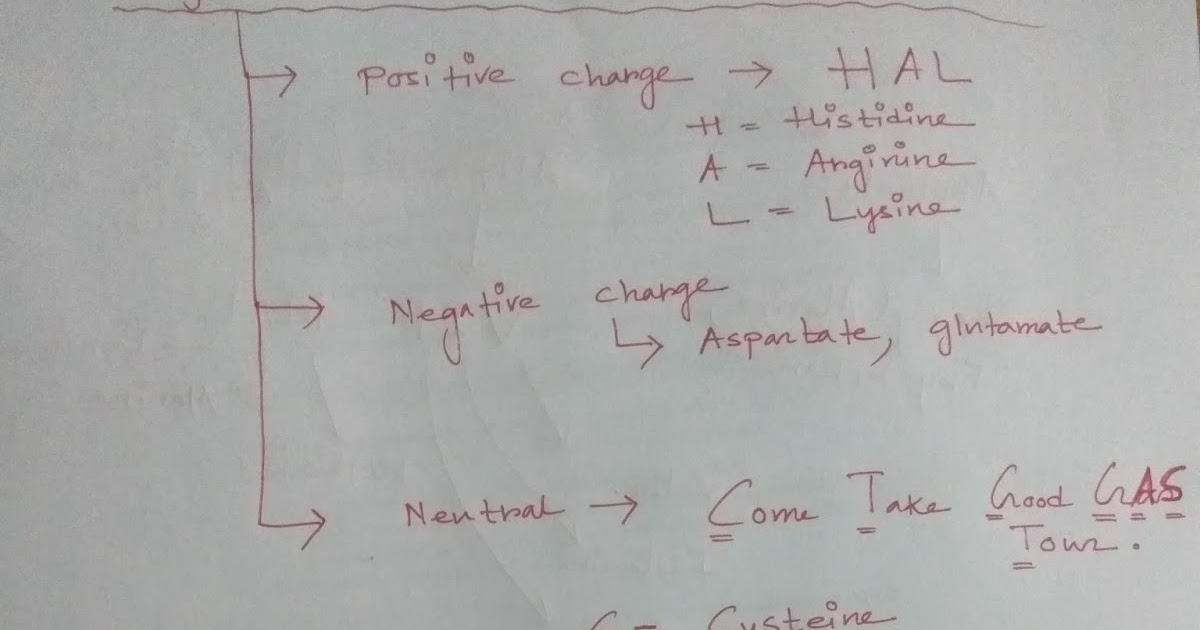 Positive charge → HAL
H = Histidine
A = Anginine
L = Lysine
Negative charge
↳ Aspartate, glutamate
Neutral → Come Take Good GAS
Tour.
C = Cysteine